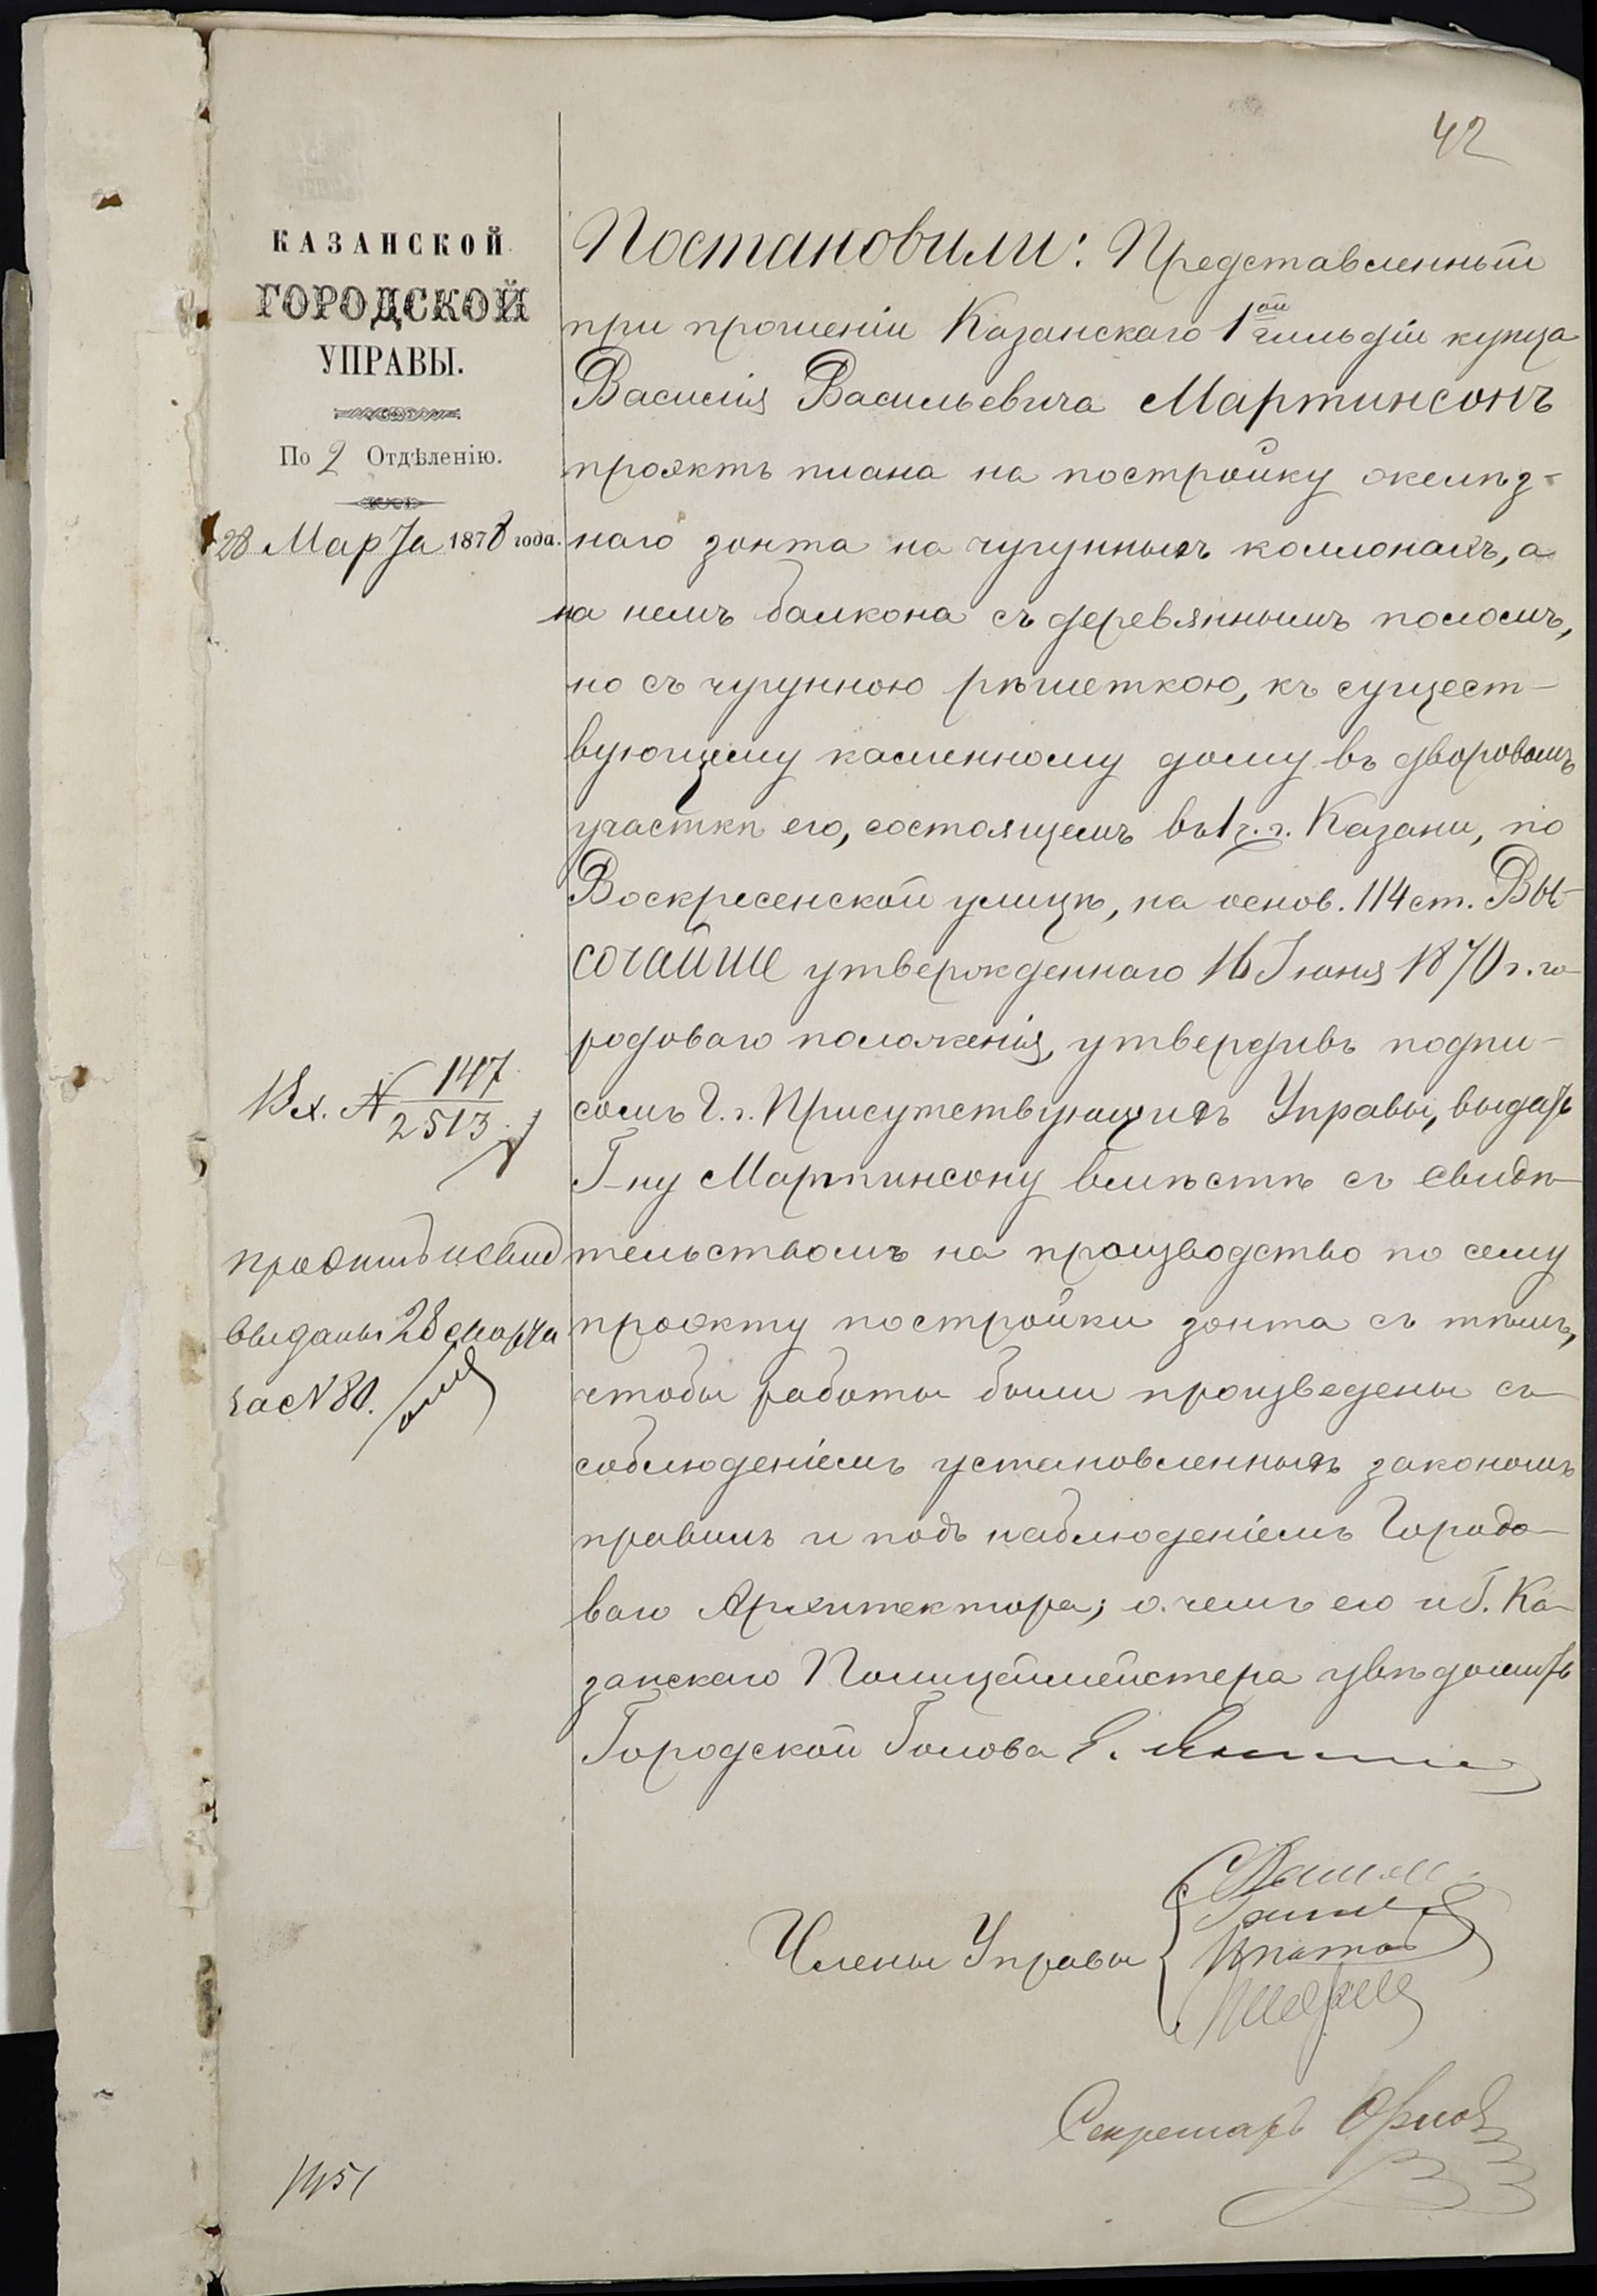 42
КАЗАНСКОЙ
ГОРОДСКОЙ
УПРАВЫ.
По 2 Отдѣленію.
28 Марта 1878 года.
Вх. № 147
2513
проэктъ и свид
выданы 28 марта
за № 80.
Постановили: Представленный
при прошеніи Казанскаго 1ой гильдіи купца
Василія Васильевича Мартинсонъ
проэктъ плана на постройку желѣз-
наго зонта на чугунныхъ коллонахъ, а
на немъ балкона съ деревяннымъ поломъ,
но съ чугунною рѣшеткою, къ сущест-
вующему каменному дому въ дворовомъ
участкѣ его, состоящемъ въ 1 ч. г. Казани, по
Воскресенской улицѣ, на основ. 114 ст. Вы-
сочайше утвержденнаго 16 Іюня 1870 г. го-
родоваго положенія, утвердивъ подпи-
сомъ Г. г. Присутствующихъ Управы, выдать
Г-ну Мартинсону вмѣстѣ съ свидѣ-
тельствомъ на производство по сему
проэкту постройки зонта съ тѣмъ,
чтобы работы были произведены съ
соблюденіемъ установленныхъ закономъ
правилъ и подъ наблюденіемъ Городо-
ваго Архитектора; о чемъ его и Г. Ка-
занскаго Полицеймейстера увѣдомить
Городской Голова Е.
Члены Управы
Секретарь Орлов